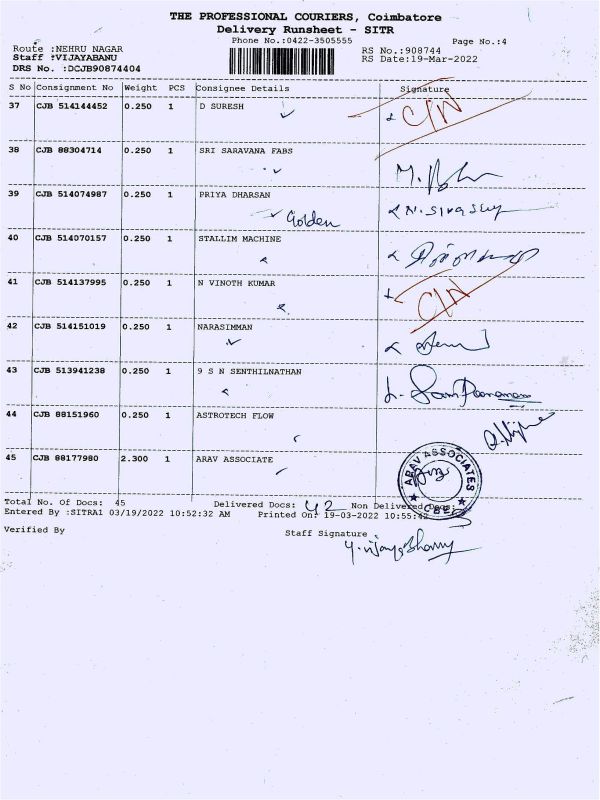 THE PROFESSIONAL COURIERS, Coimbatore
Delivery Runsheet - SITR
Phone No.:0422-3505555 Page No.:4
Route :NEHRU NAGAR RS No.:908744
Staff :VIJAYABANU RS Date:19-Mar-2022
DRS No. :DCJB90874404
S No Consignment No Weight PCS Consignee Details Signature
37 CJB 514144452 0.250 1 D SURESH C/N
38 CJB 88304714 0.250 1 SRI SARAVANA FABS
39 CJB 514074987 0.250 1 PRIYA DHARSAN
Golden
40 CJB 514070157 0.250 1 STALLIM MACHINE
41 CJB 514137995 0.250 1 N VINOTH KUMAR C/N
42 CJB 514151019 0.250 1 NARASIMMAN
43 CJB 513941238 0.250 1 9 S N SENTHILNATHAN
44 CJB 88151960 0.250 1 ASTROTECH FLOW
45 CJB 88177980 2.300 1 ARAV ASSOCIATE
ARAV ASSOCIATES
CBE
Total No. Of Docs: 45 Delivered Docs: 42 Non Delivered Docs:
Entered By :SITRA1 03/19/2022 10:52:32 AM Printed On: 19-03-2022 10:55:42
Verified By Staff Signature